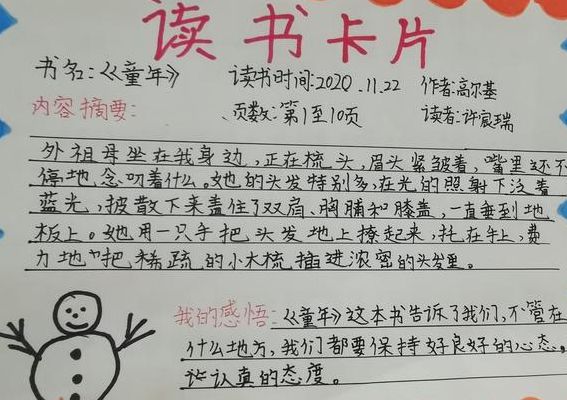 读书卡片
书名:《童年》 读书时间:2020.11.22 作者:高尔基
内容摘要: 页数:第1至10页 读者:许宸瑞
外祖母坐在我身边,正在梳头,眉头紧皱着,嘴里还不
停地念叨着什么。她的头发特别多,在光的照射下泛着
蓝光,披散下来盖住了双肩、胸脯和膝盖,一直垂到地
板上。她用一只手把头发地上撩起来,托在手上,费
力地"把稀疏的小木梳插进浓密的头发里。
我的感悟:《童年》这本书告诉了我们,不管在
什么地方,我们都要保持好良好的心态。
认真的态度。